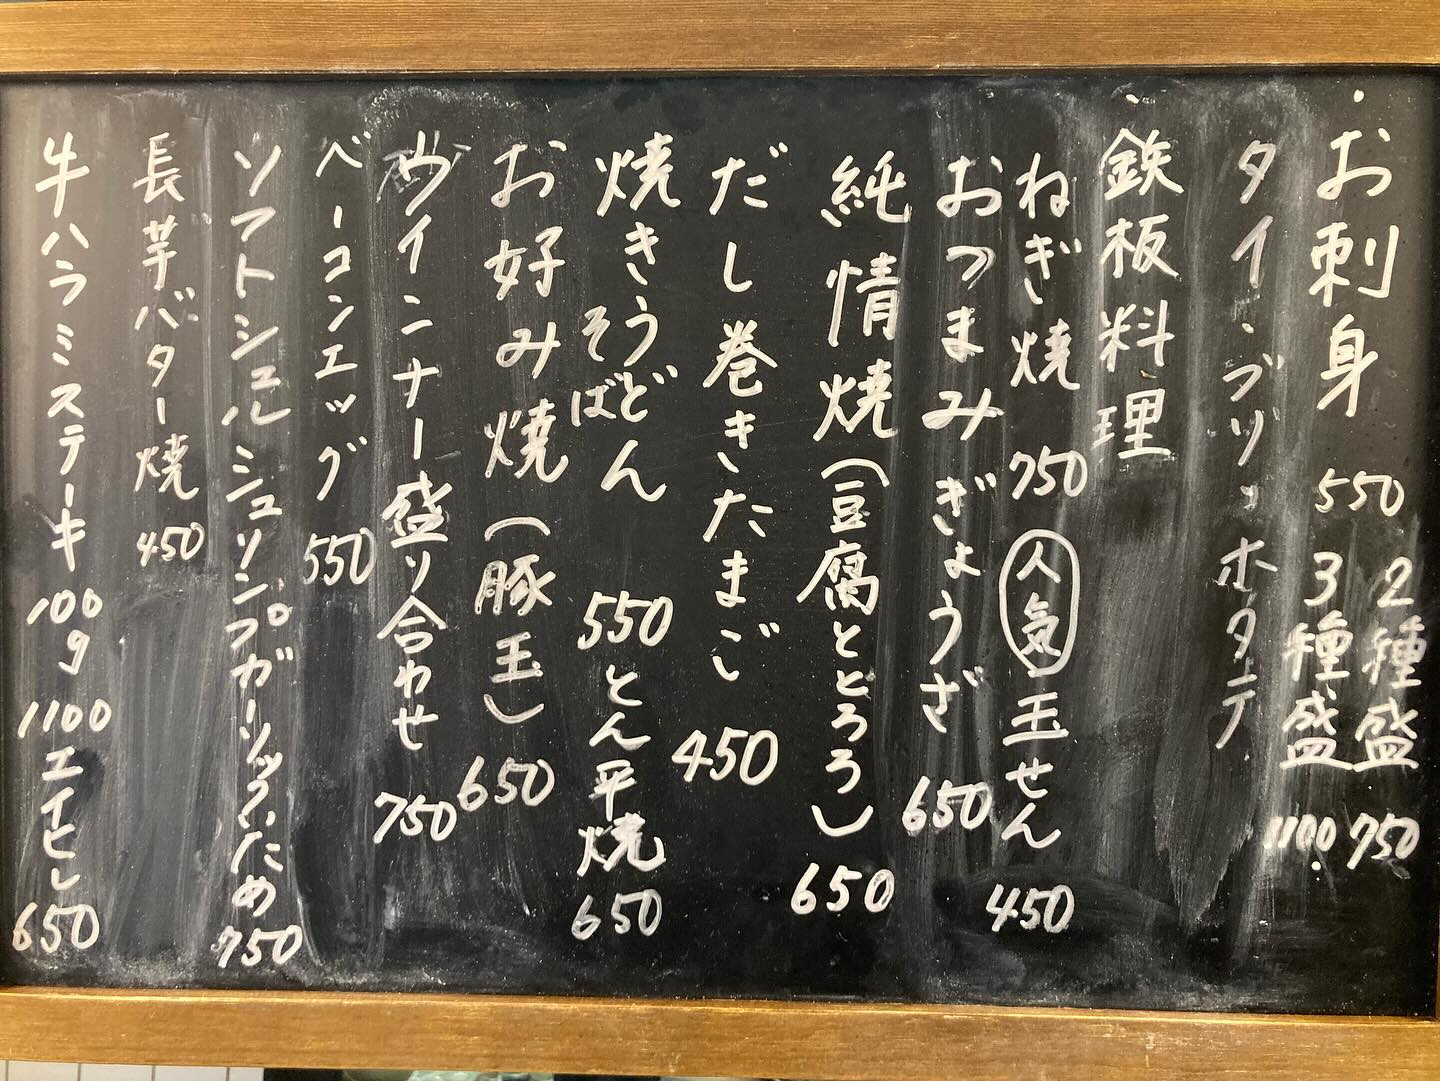 お刺身 550 2種盛 750
3種盛 1100
タイ・ブリ・ホタテ
鉄板料理
ねぎ焼 750 人気 玉せん 450
おつまみぎょうざ 650
純情焼(豆腐ととろろ) 650
だし巻きたまご 450
焼きうどん
そば 550 とん平焼 650
お好み焼(豚玉) 650
ウインナー盛り合わせ 750
ベーコンエッグ 550
ソフトシェルシュリンプガーリックいため 750
長芋バター焼 450
牛ハラミステーキ 100g 1100 エイヒレ 650